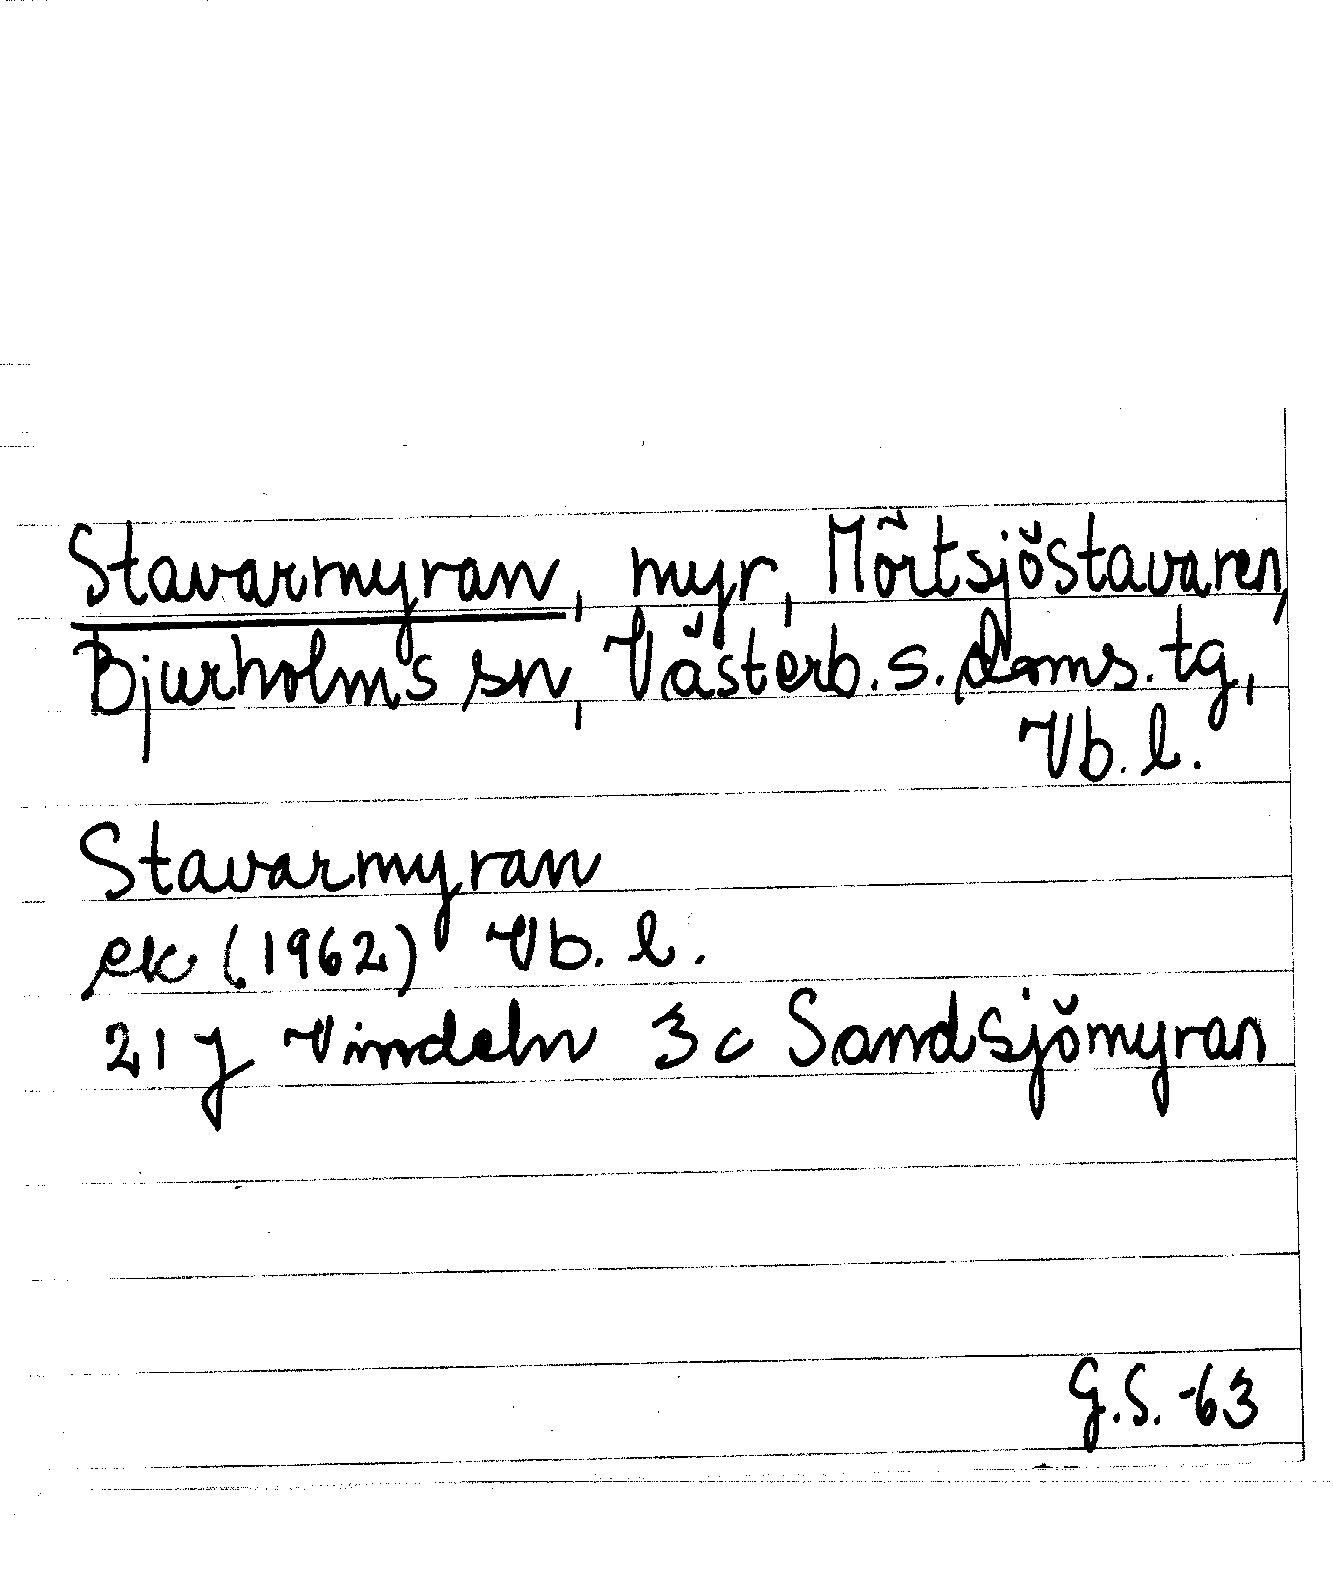 Stavarmyran, myr, Mörtsjöstavaren,
Bjurholms sn, Västerb. s. doms. tg,
Vb. l.
Stavarmyran
ek (1962) Vb. l.
21 J Vindeln 3 c Sandsjömyran
G.S. -63